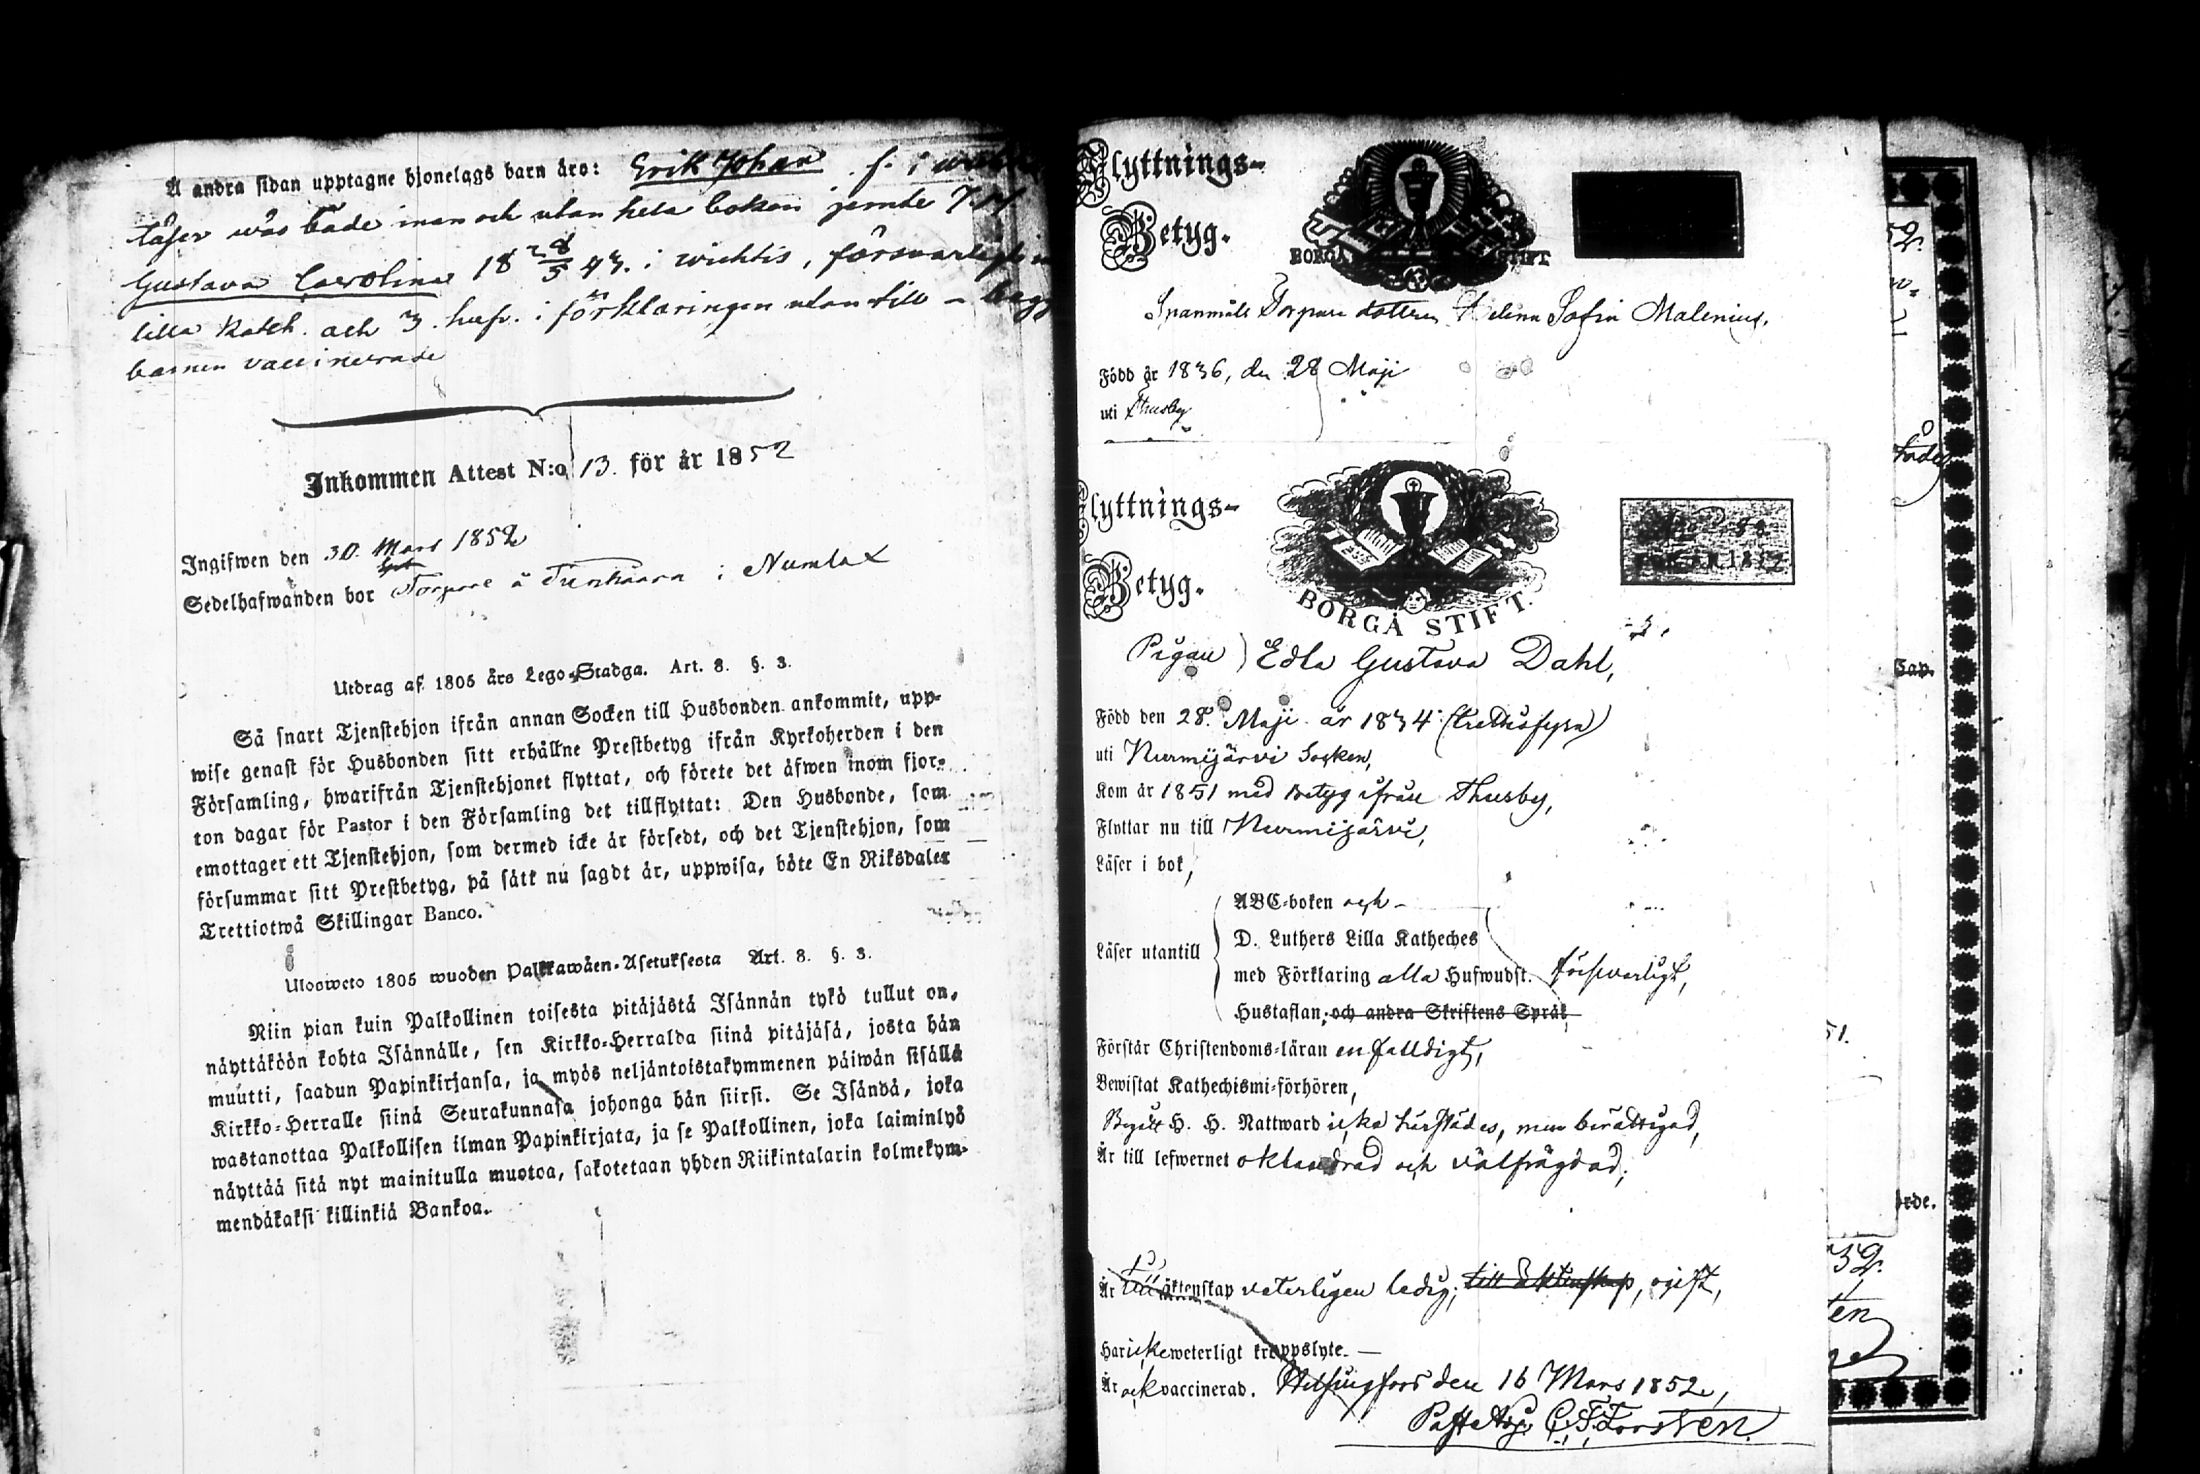 Å andra sidan upptagne hjonelags barn äro: Erik Johan f. i
läser wäs både inan och utan hela boken jemte
Gustava Carolina 18 28/5 43. i wichtis, försvarligt
lilla Katch. och 3. hufv. i förklaringen utan till –
barnen vaccinerade
Inkommen Attest N:o 13. för år 1852
Ingifwen den 30. Mars 1852
Sedelhafwanden bor Torpare å i Numlax
Utdrag af 1805 års Lego-Stadga. Art. 8. §. 3.
Så snart Tjenstehjon ifrån annan Socken till Husbonden ankommit, upp-
wise genast för Husbonden sitt erhållne Prestbetyg ifrån Kyrkoherden i den
Församling, hwarifrån Tjenstehjonet flyttat, och förete det äfwen inom fjor-
ton dagar för Pastor i den Församling det tillflyttat: Den Husbonde, som
emottager ett Tjenstehjon, som dermed icke är försedt, och det Tjenstehjon, som
försummar sitt Prestbetyg, på sätt nu sagdt är, uppwisa, böte En Riksdaler
Trettiotwå Skillingar Banco.
Ulosweto 1805 wuoden Palkkawäen-Asetuksesta Art. 8. §. 3.
Niin pian kuin Palkollinen toisesta pitäjästä Isännän tykö tullut on,
näyttäköön kohta Isännälle, sen Kirkko-Herralda siinä pitäjäsä, josta hän
muutti, saadun Papinkirjansa, ja myös neljäntoistakymmenen päiwän sisällä
Kirkko-Herralle siinä Seurakunnasa johonga hän siirsi. Se Isändä, joka
wastanottaa Palkollisen ilman Papinkirjata, ja se Palkollinen, joka laiminlyö
näyttää sitä nyt mainitulla muotoa, sakotetaan yhden Riikintalarin kolmekym-
mendäkaksi killinkiä Bankoa.
Flyttnings-
Betyg.
BORGÅ STIFT.
Spanmåls Torpare dottren Helena Sofia Malenius,
Född år 1836, den 28 Maji
uti Thusby
Flyttnings-
Betyg.
BORGÅ STIFT.
Pigan Edla Gustava Dahl,
Född den 28. Maji år 1834 (trettiofyra)
uti Nurmijärvi Socken,
Kom år 1851 med betyg ifrån Thusby,
Flyttar nu till Nurmijärvi,
Läser i bok,
ABC-boken och –
Läser utantill
D. Luthers Lilla Katheches
med Förklaring alla Hufwudst. försvarligt,
Hustaflan, och andra Skriftens Språk,
Förstår Christendoms-läran enfalldigt,
Bewistat Kathechismi-förhören,
Begått H. H. Nattward icke härstädes, men berättigad,
Är till lefwernet oklandrad och välfrägdad;
Är till äktenskap veterligen ledig; till äktenskap, ogift,
Har icke weterligt kroppslyte. –
Är ock vaccinerad. Helsingfors den 16 Mars 1852,
C. F. Forstén.